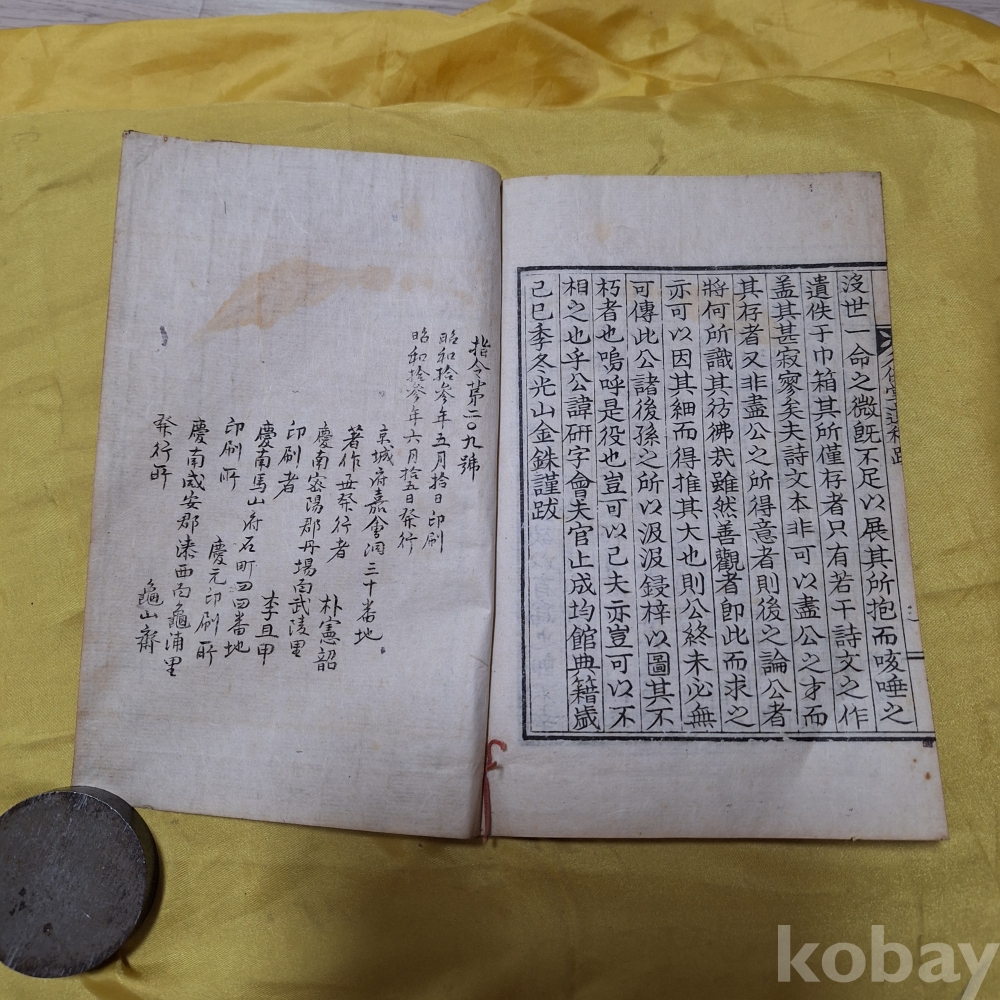 沒世一命之微旣不足以展其所抱而咳唾之
遺佚于巾箱其所僅存者只有若干詩文之作
盖其甚寂寥矣夫詩文本非可以盡公之才而
其存者又非盡公之所得意者則後之論公者
將何所識其彷彿㦲雖然善觀者卽此而求之
亦可以因其細而得推其大也則公終未必無
可傳此公諸後孫之所以汲汲鋟梓以圖其不
朽者也嗚呼是役也豈可以已夫亦豈可以不
相之也乎公諱研字會夫官止成均館典籍歲
己巳季冬光山金銖謹跋
指令第二〇九號
昭和拾參年五月拾日印刷
昭和拾參年六月拾五日發行
京城府嘉會洞三十番地
著作兼發行者 朴憲韶
慶南密陽郡丹場面武陵里
印刷者 李且甲
慶南馬山府石町四四番地
印刷所 慶元印刷所
慶南咸安郡漆西面龜浦里
發行所 龜山齋
kobay